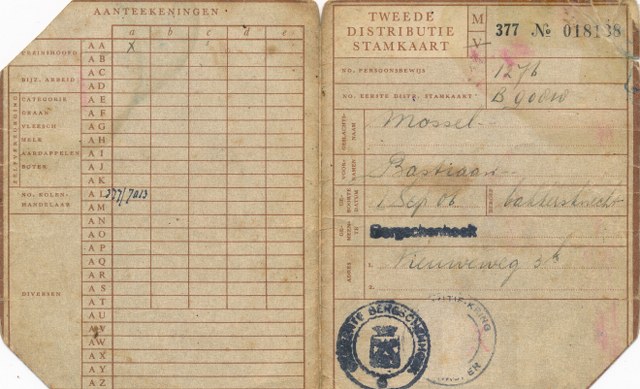 AANTEEKENINGEN
a b c d e
GEZINSHOOFD
AA X
AB
BIJZ. ARBEID
AC
AD
ZELFVERZORGING
CATEGORIE
AE
GRAAN
AF
VLEESCH
AG
MELK
AH
AARDAPPELEN
AI
BOTER
AJ
AK
NO. KOLEN-
HANDELAAR
AL 377/7013
AM
AN
AO
AP
AQ
AR
DIVERSEN
AS
AT
AU
AV
AW
AX
AY
AZ
TWEEDE
DISTRIBUTIE
STAMKAART
M
V
377 No 018138
NO. PERSOONSBEWIJS 1276
NO. EERSTE DISTR. STAMKAART B
GESLACHTS-
NAAM
Mossel
VOOR-
NAMEN
Bastiaan
GE-
BOORTE-
DATUM
1 Sep 06
BEROEP
bakkersknecht
GE-
MEEN-
TE
Bergschenhoek
ADRES
1. Nieuweweg
2.
GEMEENTE BERGSCHENHOEK